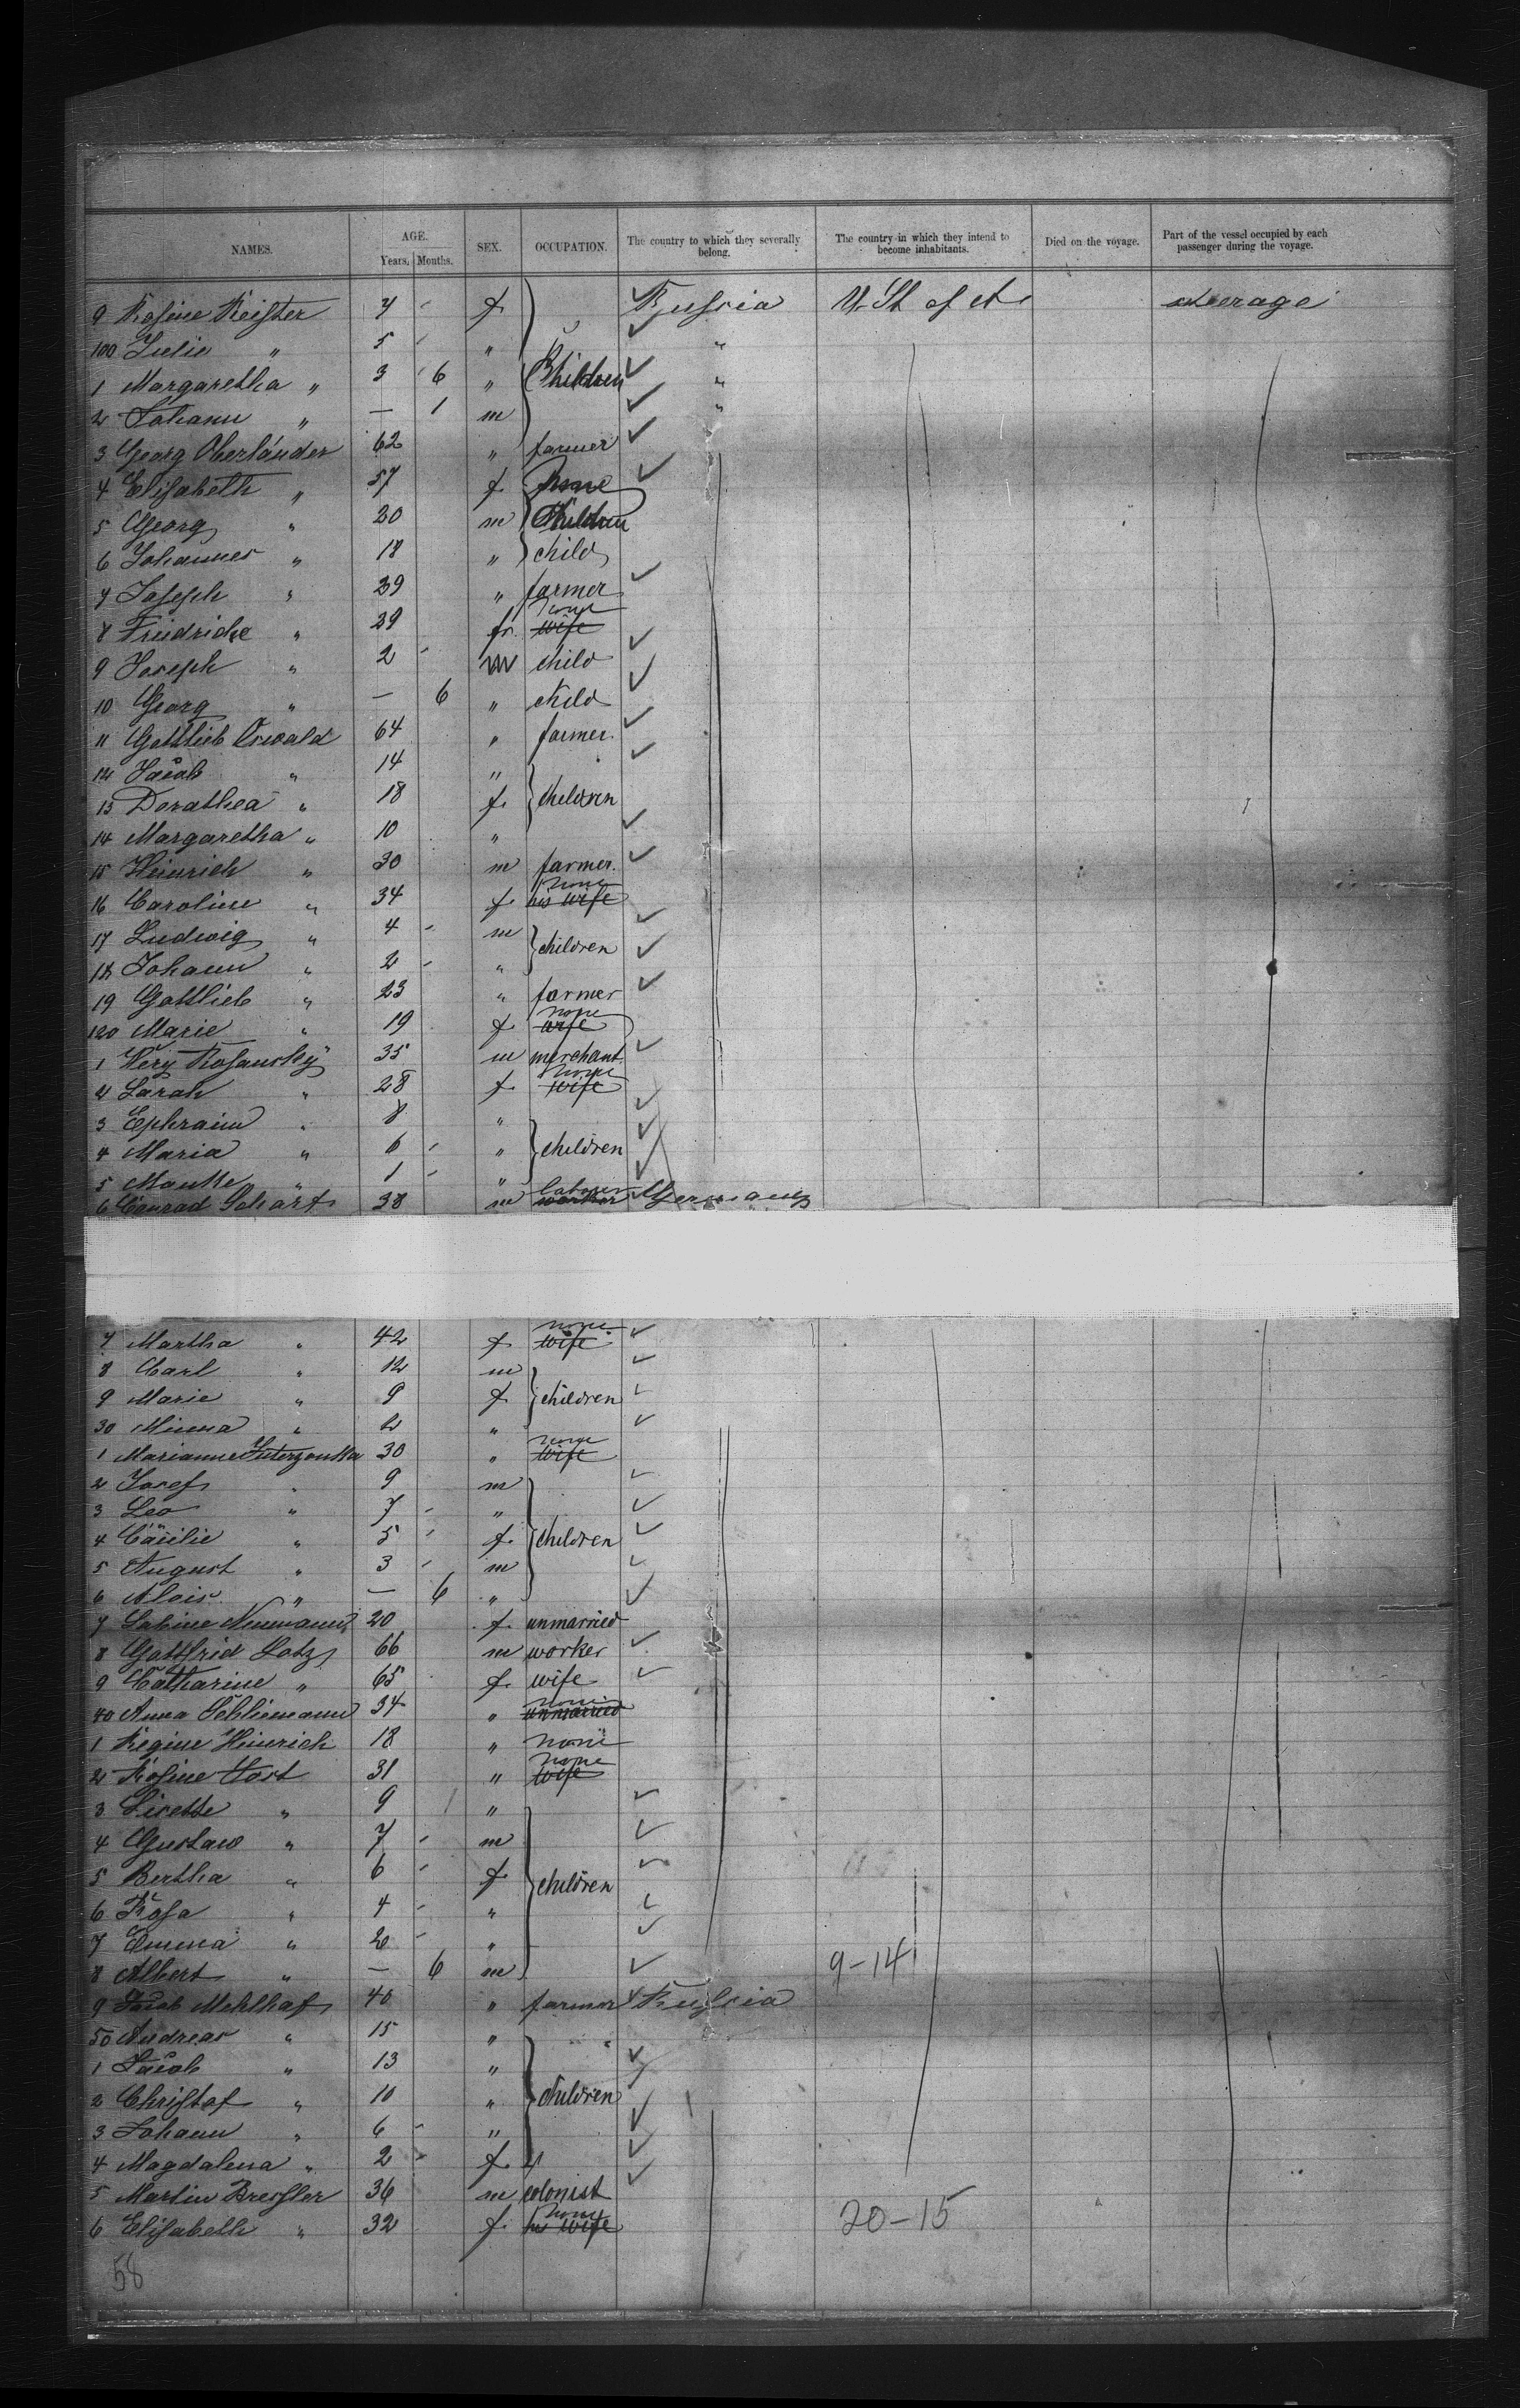 NAMES. AGE. Years. Months. SEX. OCCUPATION. The country to which they severally belong. The country in which they intend to become inhabitants. Died on the voyage. Part of the vessel occupied by each passenger during the voyage.
9 Rosine Reister 7 - f Russia U. St of A steerage
100 Julie " 5 - " "
1 Margaretha " 3 6 " Children "
2 Johann " — 1 m "
3 Georg Oberländer 62 " farmer
4 Elisabeth " 57 f. None
5 Georg " 20 m Children
6 Johannes " 18 " child
7 Joseph " 29 " farmer
8 Friedricke " 29 f. none wife
9 Joseph " 2 - m child
10 Georg " — 6 " child
11 Gottlieb Oswald 64 " farmer.
12 Jacob " 14 "
13 Dorathea " 18 f. children
14 Margaretha " 10 "
15 Heinrich " 30 m farmer.
16 Caroline " 34 f. none his wife
17 Ludwig " 4 - m children
18 Johann " 2 - "
19 Gottlieb " 23 " farmer
120 Marie " 19 f. none wife
1 Rosansky 35 m merchant.
2 Sarah " 28 f. none wife
3 Ephraim " 8 "
4 Maria " 6 - " children
5 " 1 - "
6 Conrad Schart 38 m labourer worker Germany
7 Martha " 42 f. none wife
8 Carl " 12 m
9 Marie " 9 f. children
30 Minna " 2 "
1 Marianne 30 " none wife
2 Josef " 9 m
3 Leo " 7 - "
4 Cäcilie " 5 - f. children
5 August " 3 - m
6 Alois " — 6 "
7 Sabine Neumann 20 f. unmarried
8 Gottfrid Lotz 66 m worker
9 Catharine " 65 f. wife
40 Anna Schliemann 34 " none unmarried
1 Regine Heinrich 18 " none
2 Rosine Hort 31 " none wife
3 Lisette " 9 "
4 Gustaw " 7 - m
5 Bertha " 6 - f children
6 Rosa " 4 - "
7 Emma " 2 - "
8 Albert " — 6 m 9-14
9 Jacob Mehlhaf 40 " farmer Russia
50 Andreas " 15 "
1 Jacob " 13 "
2 Christof " 10 " children
3 Johann " 6 - "
4 Magdalena " 2 - f.
5 Martin Bressler 36 m colonist
6 Elisabeth " 32 f. none his wife 20-15
58